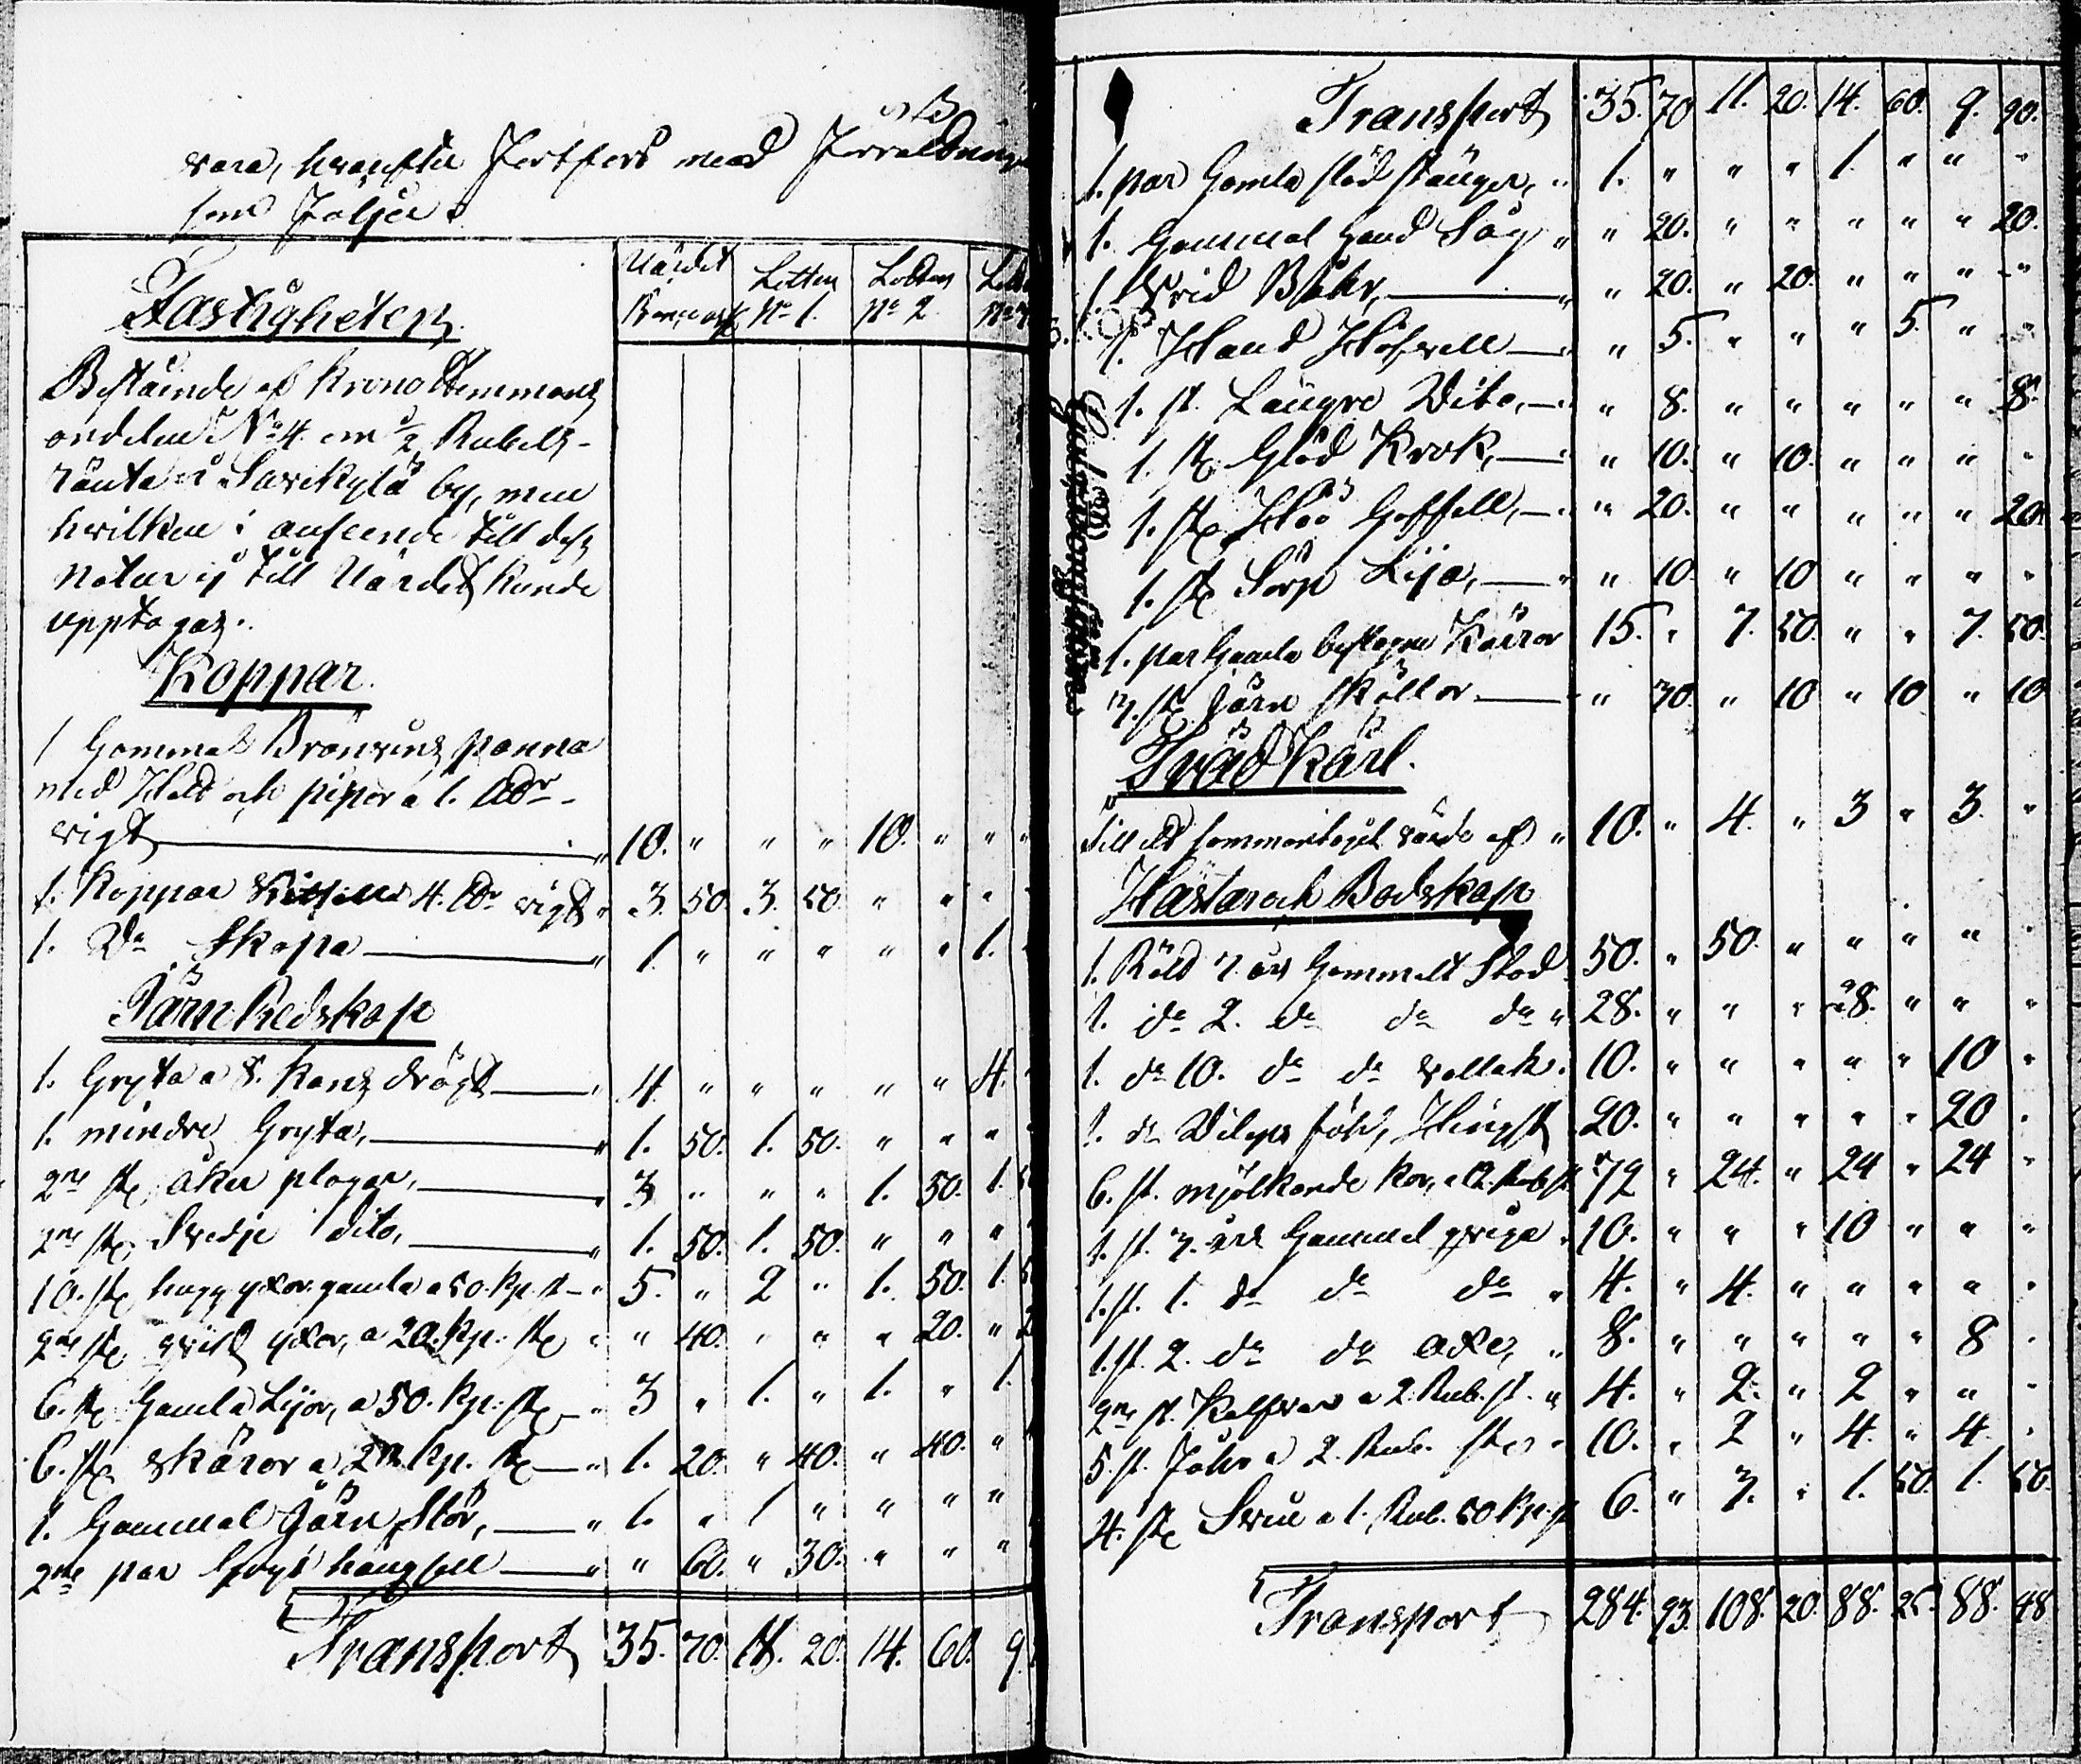 vara, hvarefter fortfors med förrättningen
som följer.
Värdet Lotten Lotten
Fastigheten.
No 1. No 2.
Bestående af Krono Hemmans
andelen No 4. om 1/2 Rubels
ränta i Savikylä by, men
hvilken i anseende till dess
natur ej till Värdet kunde
upptagas.
Koppar.
1 Gammal Bränvins panna
med Hatt och pipor a 1. Ld.
vigt 10. " " " 10. " " "
1. Koppar Kittell 4. Ld. vigt " 3. 50. 3. 50. " " "
1. Do Skopa " 1. " " " " " 1.
Järn Redskap
1. Gryta a 8. Kans drägt " 4. " " " " " 4.
1. mindre Gryta, " 1. 50. 1. 50. " " "
2ne st. åker plogar, " 3 " " " 1. 50. 1.
2ne st. Svedje dito, " 1. 50. 1. 50. " " "
10. st. hugg yxor gamla a 50. kp. st " 5. " 2 " 1. 50. 1.
2ne st. qvist yxor, a 20. kp. st. " " 40. " " " 20. " 2
6. st. Gamla Lijor, a 50. kp. st. " 3 " 1. " 1. " 1.
6. st. skäror a 20. kp. st. " 1. 20. " 40. " 40. "
1. Gammal Järn Stör, " 1. " 1 " " " "
2ne par hängsell " " 60. " 30. " " "
Transport 35. 70. 11. 20. 14. 60. 9.
Transport 35. 70 11. 20. 14. 60. 9. 90.
1. par Gamla släd stänger, " 1. " " " 1. " " "
1. Gammal Hand Såg " " 20. " " " " " 20.
1 Vrid Båhr, " " 20. " 20. " " " "
1. Hand Höfvell " " 5. " " " 5. " "
1. st. Längre Dito, " " 8. " " " " " 8.
1. st. Glöd Krok, " " 10. " 10. " " " "
1. st. Höö Gaffell, " " 20. " " " " " 20.
1. st. Sörp Lija, " " 10. " 10 " " " "
1. par Gamla beslagne Kärror 15. " 7. 50. " " 7. 50.
3. st. Järn skållor " 30. " 10 " 10 " 10
Träd Kärl.
Till ett sammantaget värde af " 10. " 4. " 3 " 3. "
Hästar och Bodskap
1. Röld 7. års Gammalt Stod 50. " 50. " " " " "
1. do 2. do do do " 28. " " " 28. " " "
1. do 10. do do vallak. 10. " " " " " 10 "
1. do föhl, Hingst 20. " " " " " 20 "
6. st. mjölkande kor, a 12. Rub st. 72 " 24. " 24 " 24 "
1. st. 3. års Gammal qviga " 10. " " " 10 " " "
1. st. 1. do do do " 4. " 4. " " " " "
1. st. 2. do do oxe, " 8. " " " " " 8 "
2ne st. Kalfvar a 2. Rub. st. " 4. " 2. " 2 " " "
5. st. Fåhr a 2. Rub. st. 10. " 2 " 4. " 4. "
4. st. Svin a 1. Rub. 50 kp. st 6. " 3. " 1. 50. 1. 50.
Transport 284. 93. 108. 20. 88. 25. 88. 48